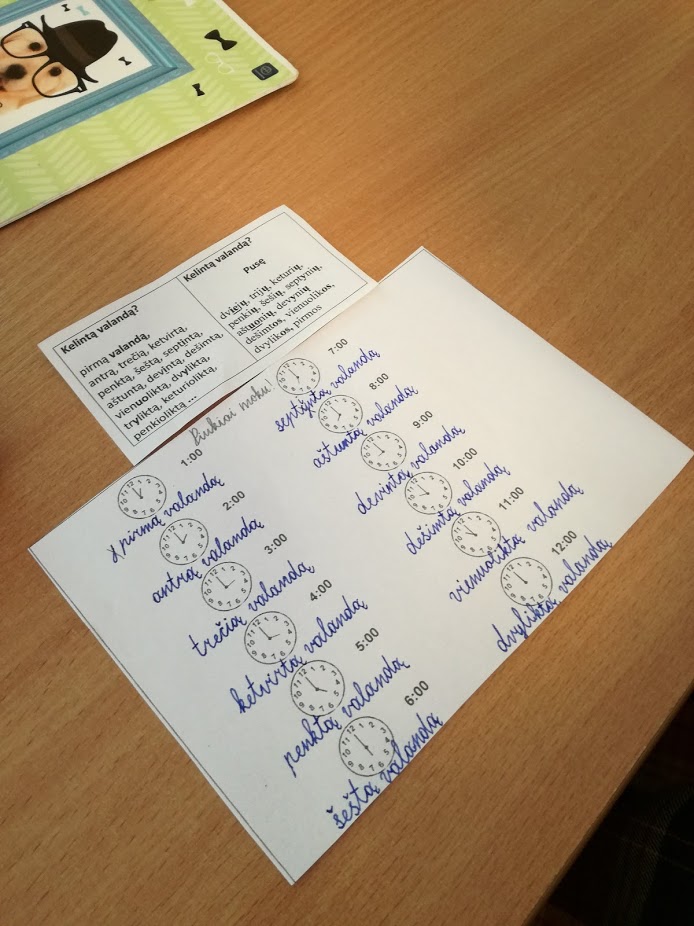 Kelintą valandą?
pirmą valandą,
antrą, trečią, ketvirtą,
penktą, šeštą, septintą,
aštuntą, devintą, dešimtą,
vienuoliktą, dvyliktą,
tryliktą, keturioliktą,
penkioliktą ...
Kelintą valandą?
Pusę
dviejų, trijų, keturių,
penkių, šešių, septynių,
aštuonių, devynių
dešimtos, vienuolikos,
dvylikos, pirmos
Puikiai moku!
1:00
pirmą valandą
2:00
antrą valandą
3:00
trečią valandą
4:00
ketvirtą valandą
5:00
penktą valandą
6:00
šeštą valandą
7:00
septintą valandą
8:00
aštuntą valandą
9:00
devintą valandą
10:00
dešimtą valandą
11:00
vienuoliktą valandą
12:00
dvyliktą valandą